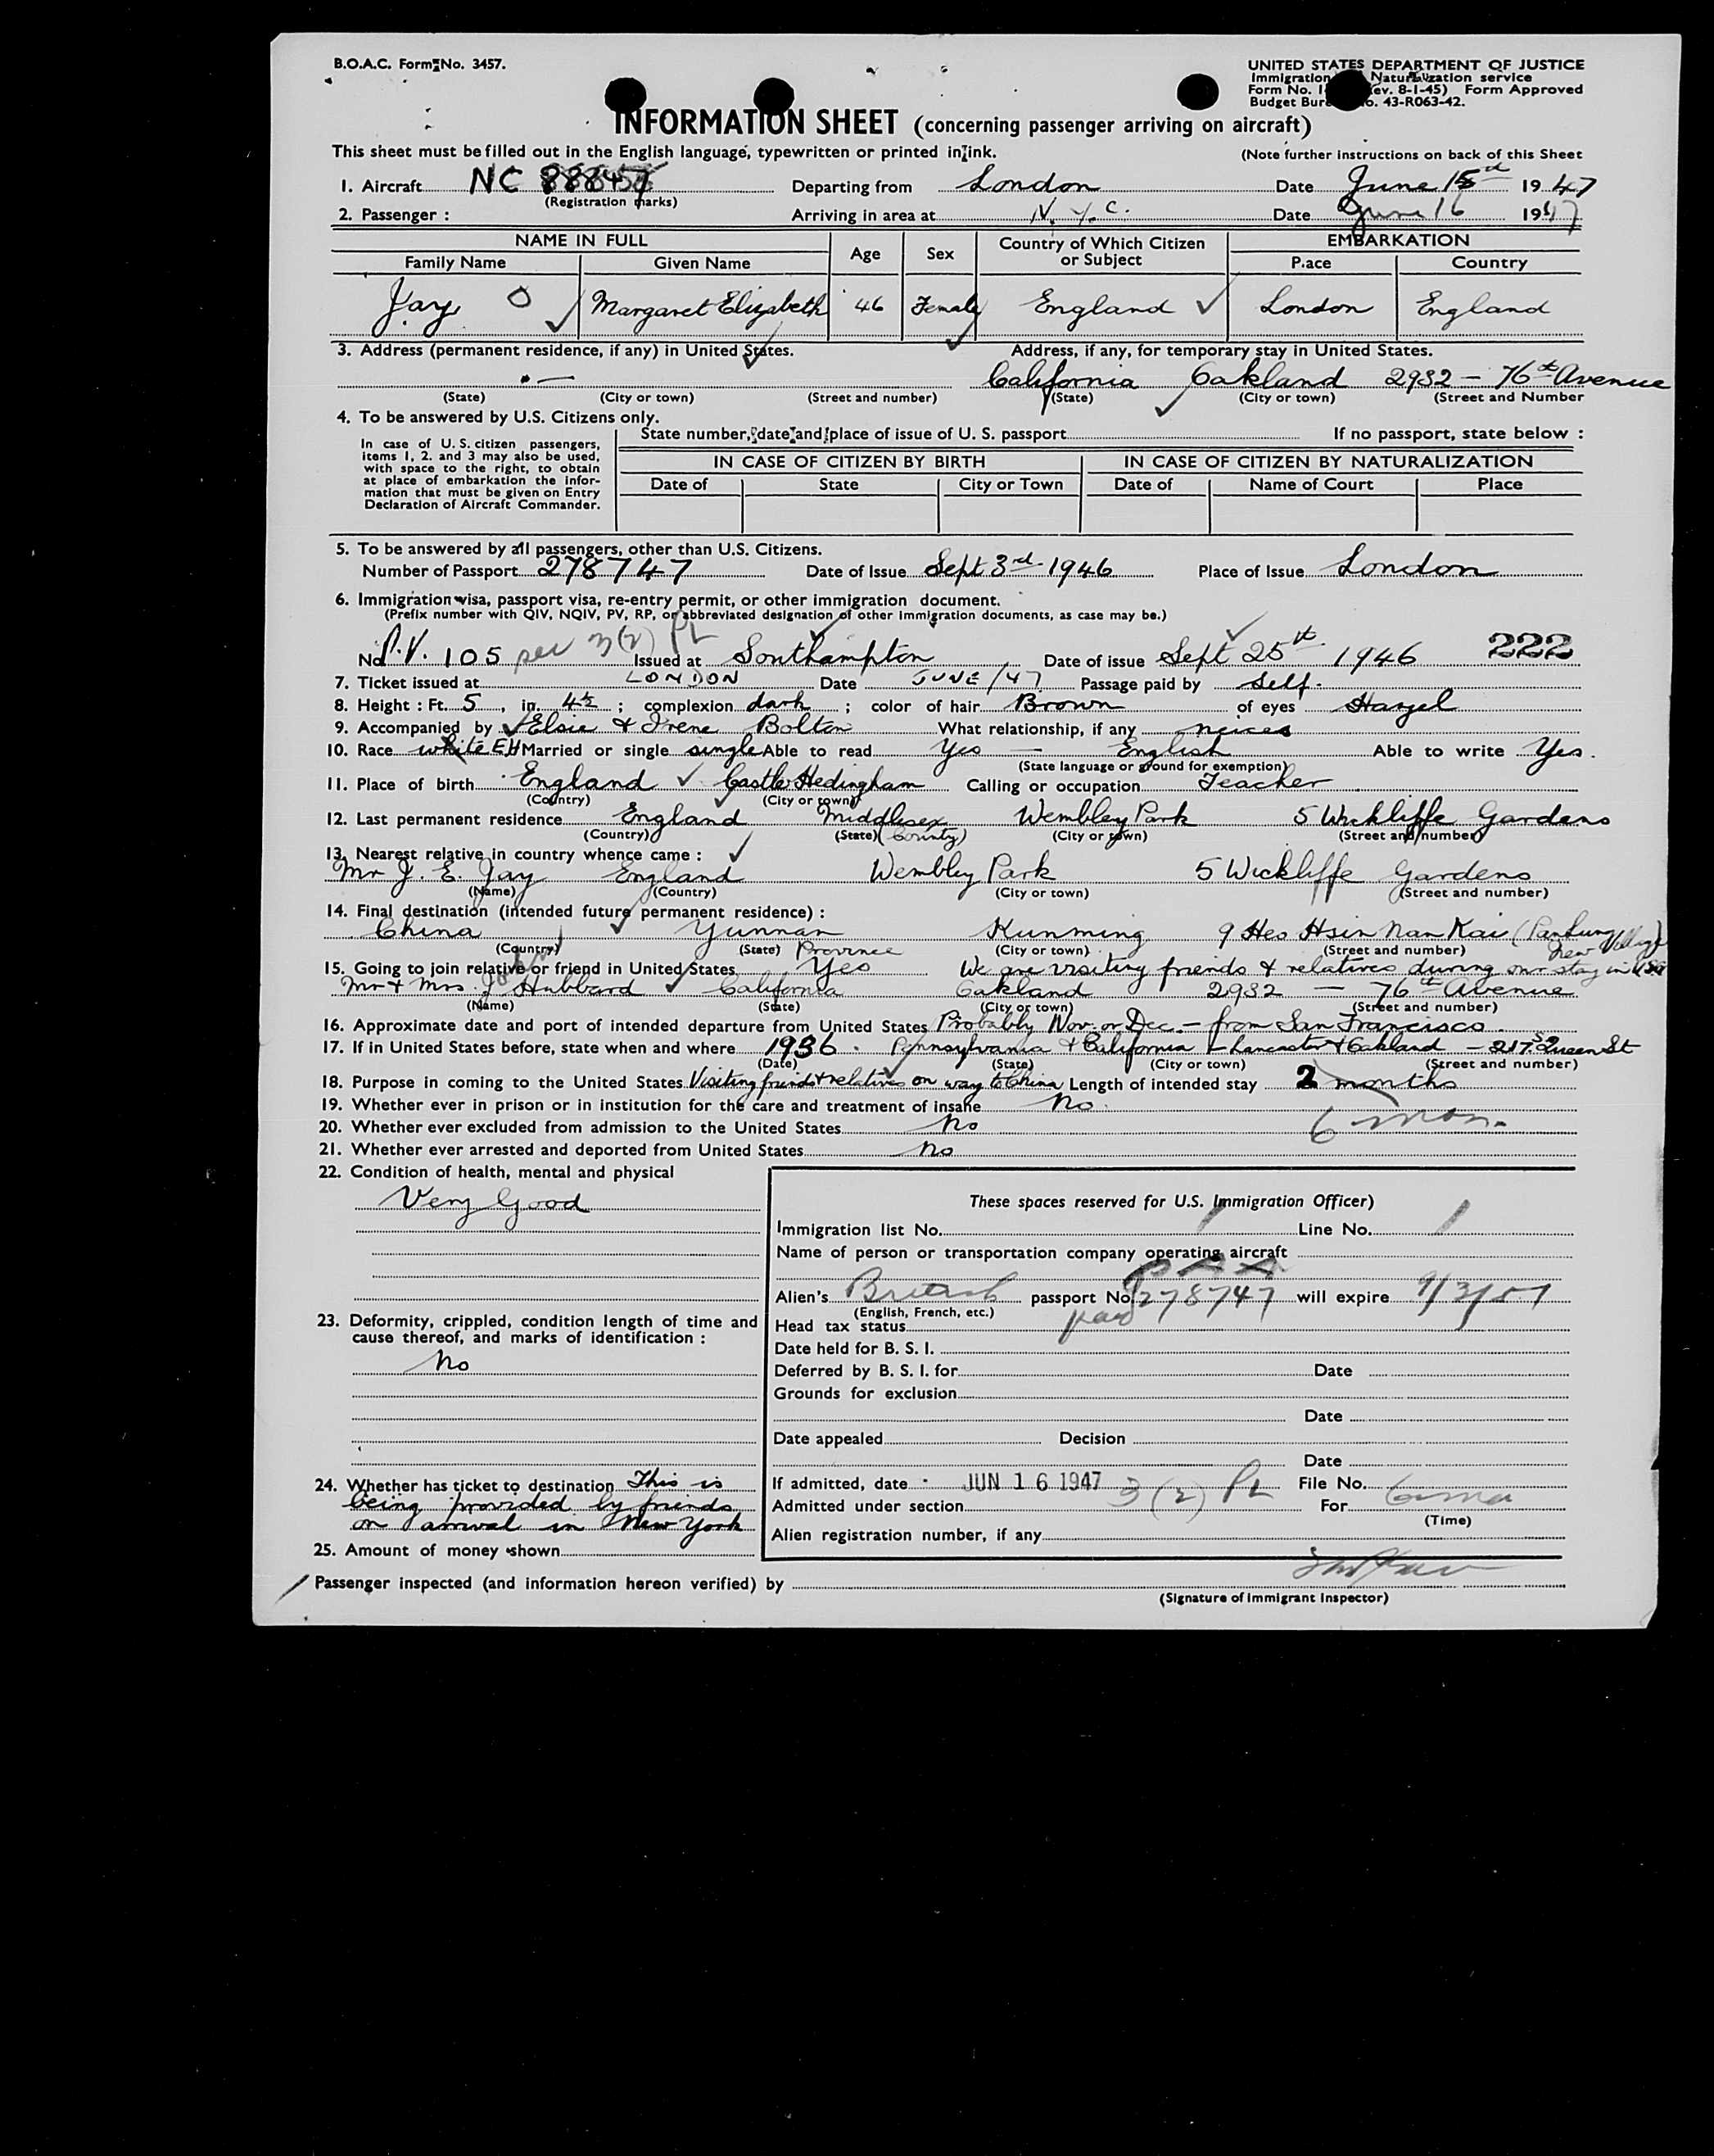 B.O.A.C. Form No. 3457.
UNITED STATES DEPARTMENT OF JUSTICE
Immigration Naturalization service
Form No. I- ev. 8-1-45) Form Approved
Budget Bure o. 43-R063-42.
INFORMATION SHEET (concerning passenger arriving on aircraft)
This sheet must be filled out in the English language, typewritten or printed in ink. (Note further instructions on back of this Sheet
1. Aircraft NC 88847 Departing from London Date June 15 1947
(Registration marks)
2. Passenger : Arriving in area at N.Y.C. Date June 16 1947
NAME IN FULL Age Sex Country of Which Citizen or Subject EMBARKATION
Family Name Given Name Place Country
Jay Margaret Elizabeth 46 Female England London England
3. Address (permanent residence, if any) in United States. Address, if any, for temporary stay in United States.
— California Oakland 2932 – 76th Avenue
(State) (City or town) (Street and number) (State) (City or town) (Street and Number
4. To be answered by U.S. Citizens only.
State number, date and place of issue of U. S. passport If no passport, state below :
In case of U. S. citizen passengers,
items 1, 2. and 3 may also be used,
with space to the right, to obtain
at place of embarkation the infor-
mation that must be given on Entry
Declaration of Aircraft Commander.
IN CASE OF CITIZEN BY BIRTH IN CASE OF CITIZEN BY NATURALIZATION
Date of State City or Town Date of Name of Court Place
5. To be answered by all passengers, other than U.S. Citizens.
Number of Passport 278747 Date of Issue Sept 3rd 1946 Place of Issue London
6. Immigration visa, passport visa, re-entry permit, or other immigration document.
(Prefix number with QIV, NQIV, PV, RP, or abbreviated designation of other immigration documents, as case may be.)
No. P.V. 105 per 3(2) PL Issued at Southampton Date of issue Sept 25th 1946 222
7. Ticket issued at LONDON Date JUNE/47 Passage paid by Self.
8. Height : Ft. 5, in. 4½ ; complexion dark ; color of hair Brown of eyes Hazel
9. Accompanied by Elsie & Irene Bolton What relationship, if any neices
10. Race white EH Married or single single Able to read Yes — English Able to write Yes.
(State language or ground for exemption)
11. Place of birth England Castle Hedingham Calling or occupation Teacher
(Country) (City or town)
12. Last permanent residence England Middlesex Wembley Park 5 Wickliffe Gardens
(Country) (State) (County) (City or town) (Street and number)
13. Nearest relative in country whence came :
Mr J. E. Jay England Wembley Park 5 Wickliffe Gardens
(Name) (Country) (City or town) (Street and number)
14. Final destination (intended future permanent residence) :
China Yunnan Kunming 9 Heo Hsin Nan Kai (Panlung New Village)
(Country) (State) Province (City or town) (Street and number)
15. Going to join relative or friend in United States Yes We are visiting friends & relatives during our stay in USA
Mr & Mrs. J. Hubbard California Oakland 2932 — 76th Avenue
(Name) (State) (City or town) (Street and number)
16. Approximate date and port of intended departure from United States Probably Nov. or Dec. – from San Francisco.
17. If in United States before, state when and where 1936. Pennsylvania & California – Lancaster & Oakland – 217 S Queen St
(Date) (State) (City or town) (Street and number)
18. Purpose in coming to the United States Visiting friends & relatives on way to China Length of intended stay 2 months
19. Whether ever in prison or in institution for the care and treatment of insane No.
6 mos.
20. Whether ever excluded from admission to the United States No
21. Whether ever arrested and deported from United States No
22. Condition of health, mental and physical
Very Good
These spaces reserved for U.S. Immigration Officer)
Immigration list No. 1 Line No. 1
Name of person or transportation company operating aircraft
P A A
Alien's British passport No. 278747 will expire 9/3/51
(English, French, etc.)
23. Deformity, crippled, condition length of time and
cause thereof, and marks of identification :
No
Head tax status paid
Date held for B. S. I.
Deferred by B. S. I. for Date
Grounds for exclusion
Date
Date appealed Decision
Date
24. Whether has ticket to destination This is
being provided by friends
on arrival in New York
If admitted, date JUN 16 1947 File No.
Admitted under section 3(2) PL For 6 mos
(Time)
Alien registration number, if any
25. Amount of money shown
Passenger inspected (and information hereon verified) by
(Signature of Immigrant Inspector)